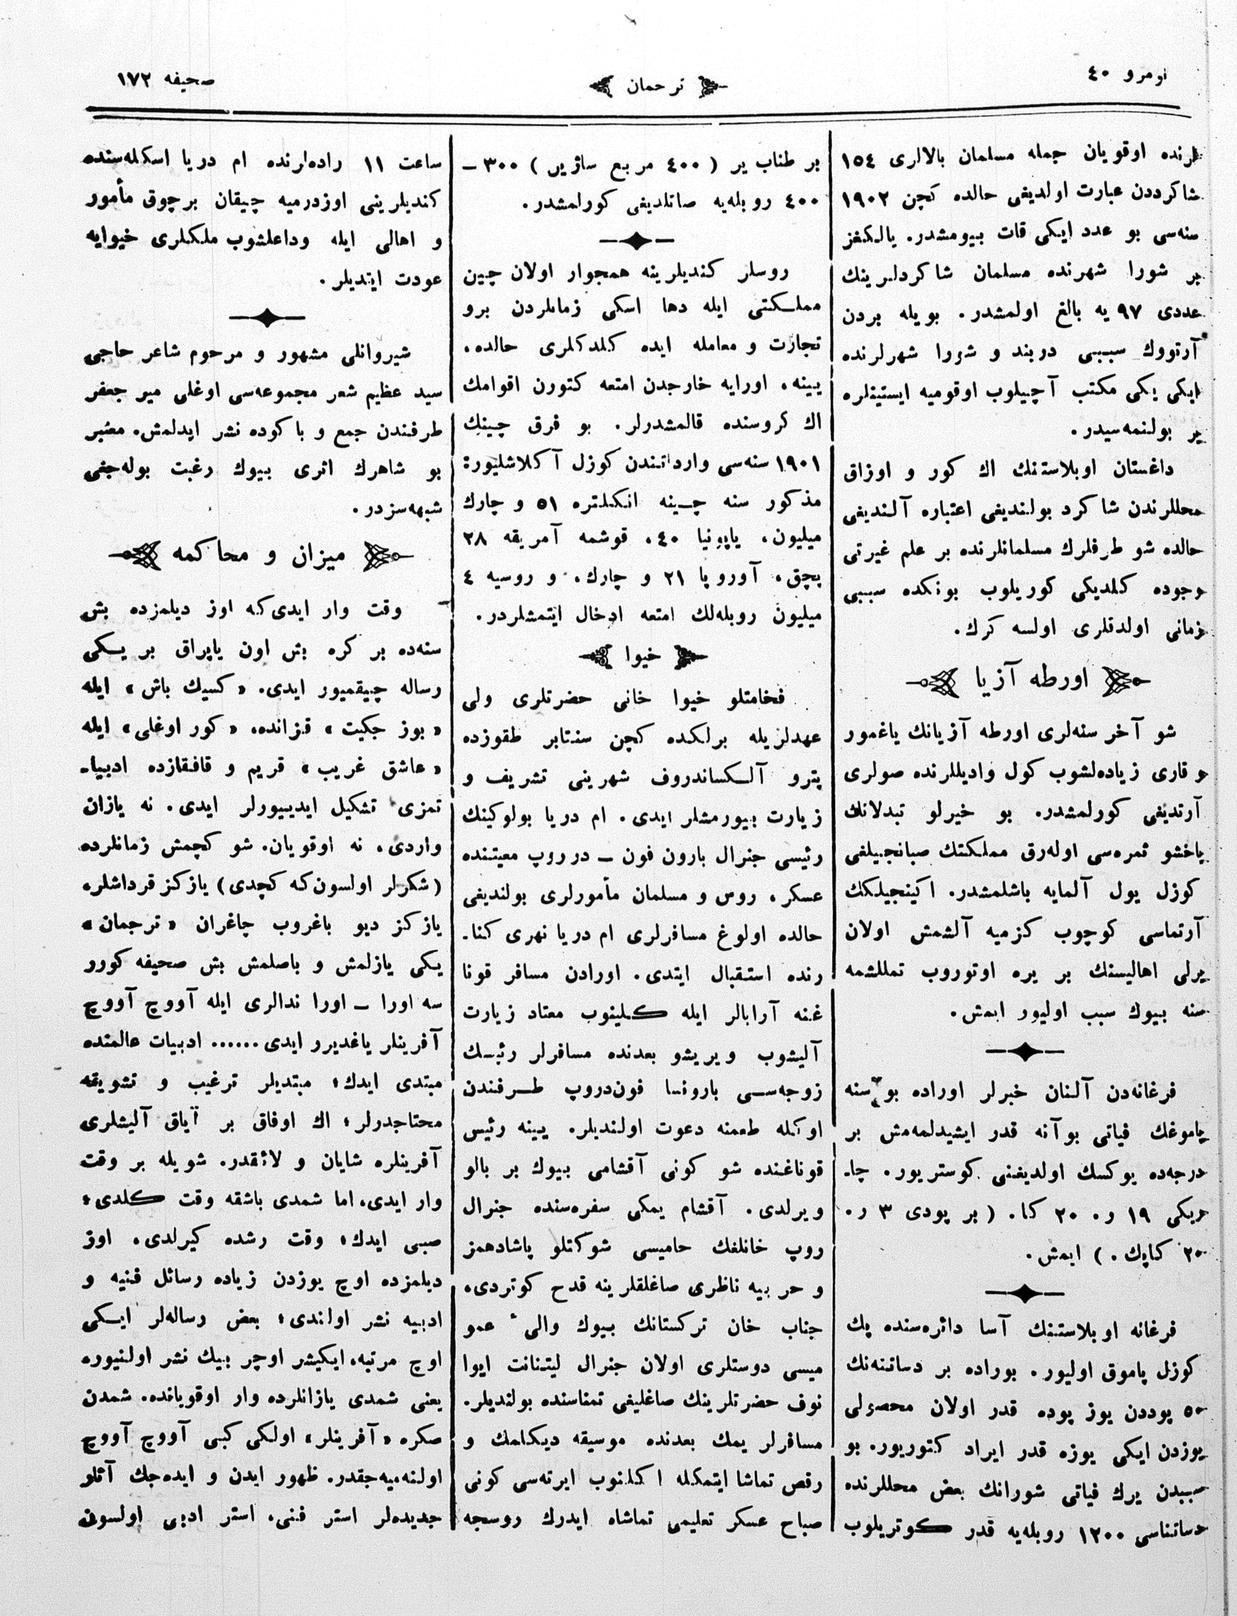 نومرو ٤٠
ترجمان
صحيفه ١٧٢
لرنده اوقويان جمله مسلمان بالالرى ١٥٤
شاكرددن عبارت اولديغى حالده كچن ١٩٠٢
سنه‌سى بو عدد ايكى قات بيومشدر. يالـكغز
بر شورا شهرنده مسلمان شاكردلـرينك
عددى ٩٧ يه بالغ اولمشدر. بويله بردن
آرتووك سببى دربند و شورا شهرلرنده
ايكى يكى مكتب آچيلوب اوقوميه ايستينلره
ير بولنمه‌سيدر.
داغستان اوبلاستنك اك كور و اوزاق
محللرندن شاكرد بولنديغى اعتباره آلنديغى
حالده شو طرفلرك مسلمانلرنده بر علم غيرتى
وجوده كلديكى كوريلوب بونكده سببى
زمانى اولدقلرى اولسه كرك.
اورطه آزيا
شو آخر سنه‌لرى اورطه آزيانك ياغمور
و قارى زياده‌لشوب كول واديللرنده صولرى
آرتديغى كورلمشدر. بو خيرلو تبدلاتك
ياخشو ثمره‌سى اوله‌رق مملكتك صبانجيلغى
كوزل يول آلمايه باشلمشدر. اكينجيلكك
آرتماسى كوچوب كزميه آلشمش اولان
يرلى اهاليسنك بر يره اوتوروب تمللشمه
سنه بيوك سبب اوليور ايمش.
فرغانه‌دن آلنان خبرلر اوراده بو سنه
پاموغك فياتى بوآنه قدر ايشيدلمه‌مش بر
درجه‌ده يوكسك اولديغنى كوستريور. چا.
ريكى ١٩ ر. ٢٠ كا. ( بر پودى ٣ ر.
٢٠ كاپك . ) ايمش.
فرغانه اوبلاستنك آسا دائره‌سنده پك
كوزل پاموق اوليور. بوراده بر دساتنه‌نك
٥٠ پوددن يوز پوده قدر اولان محصولى
يوزدن ايكى يوزه قدر ايراد كتوريور. بو
سببدن يرك فياتى شورانك بعض محللرنده
دساتناسى ١٢٠٠ روبله‌يه قدر كـوتريلوب
بر طناب ير ( ٤٠٠ مربع ساژين ) ٣٠٠ –
٤٠٠ روبله‌يه صاتلديغى كورلمشدر.
روسلر كنديلرينه همجوار اولان چين
مملـكتى ايله دها اسكى زمانلردن برو
تجارت و معامله ايده كلدكلرى حالده.
يينه، اورايه خارجدن امتعه كتورن اقوامك
اك كروسنده قالمشدرلر. بو فرق چينك
١٩٠١ سنه‌سى وارداتندن كوزل آكلاشليور:
مذكور سنه چـينه انكلتره ٥١ و چارك
ميليون، ياپونيا ٤٠، قوشمه آمريقه ٢٨
بچق، آوروپا ٢١ و چارك، و روسيه ٤
ميليون روبله‌لك امتعه ادخال ايتمشلردر.
خيوا
فخامتلو خيوا خانى حضرتلرى ولى
عهدلريله برلكده كچن سنتابر طقوزده
پترو آلـكساندروف شهرينى تشريف و
زيارت بيورمشلر ايدى. ام دريا بولوكينك
رئيسى جنرال بارون فون – درروپ معيتنده
عسكر، روس و مسلمان مأمورلرى بولنديغى
حالده اولوغ مسافرلرى ام دريا نهرى كنا.
رنده استقبال ايتدى. اورادن مسافر قونا
غنه آرابالر ايله كـلينوب معتاد زيارت
آليشوب ويريشو بعدنده مسافرلر رئيـك
زوجه‌ســى بارونسا فون‌دروپ طــرفندن
اوكله طعمنه دعوت اولنديلر. يينه رئيس
قوناغنده شو كونى آقشامى بيوك بر بالو
ويرلدى. آقشام يمكى سفره‌سنده جنرال
روپ خانلغك حاميسى شوكتلو پاشادهمز
و حربيه ناظرى صاغلقلرينه قدح كوتردى.
جناب خان تركستانك بيوك والى عمو
ميسى دوستلرى اولان جنرال ليتنانت ايوا
نوف حضرتلرينك صاغليغى تمناسنده بولنديلر.
مسافرلر يمك بعدنده موسيقه ديكلمك و
رقص تماشا ايتمكله اكلنوب ايرته‌سى كونى
صباح عسكر تعليمى تماشاه ايدرك روسجه
ساعت ١١ راده‌لرنده ام دريا اسكله‌سنده
كنديلرينى اوزدرميه چيقان برچوق مأمور
و اهالى ايله وداعلشوب ملكلرى خيوايه
عودت ايتديلر.
شيروانلى مشهور و مرحوم شاعر حاجى
سيد عظيم شعر مجموعه‌سى اوغلى مير جعفر
طرفندن جمع و باكوده نشر ايدلمش. معتبر
بو شاهرك اثرى بيوك رغبت بوله‌جغى
شبهه‌سزدر.
ميزان و محاكمه
وقت وار ايدى‌كه اوز ديلمزده بش
سنه‌ده بر كره بش اون ياپراق بر يـكى
رساله چيقميور ايدى. «كسيك باش» ايله
«بوز جكيت» قزانده، «كور اوغلى» ايله
«عاشق غريب» قريم و قافقازده ادبيا.
تمزى تشكيل ايدييورلر ايدى. نه يازان
واردى، نه اوقويان. شو كچمش زمانلرده
(شكرلر اولسون‌كه كچدى) يازكز قرداشلر،
يازكز ديو باغروب چاغران «ترجمان»
يكى يازلمش و باصلمش بش صحيفه كورر
سه اورا – اورا ندالرى ايله آووچ آووچ
آفرينلر ياغديرو ايدى...... ادبيات عالمنده
مبتدى ايدك؛ مبتديلر ترغيب و تشويقه
محتاجدرلر؛ اك اوفاق بر آياق آليشلرى
آفرينلره شايان و لائقدر. شويله بر وقت
وار ايدى. اما شمدى باشقه وقت كـلدى؛
صبى ايدك؛ وقت رشده كيرلدى. اوز
ديلمزده اوچ يوزدن زياده رسائل فنيه و
ادبيه نشر اولندى؛ بعض رساله‌لر ايـكى
اوچ مرتبه، ايكيشر اوچر بيك نشر اولنيور.
يعنى شمدى يازانلرده وار اوقويانده. شمدن
صكره «آفرينلر» اولكى كبى آووچ آووچ
اولنه‌ميه‌جقدر. ظهور ايدن و ايده‌جك آثار
جديده‌لر استر فنى، استر ادبى اولسون